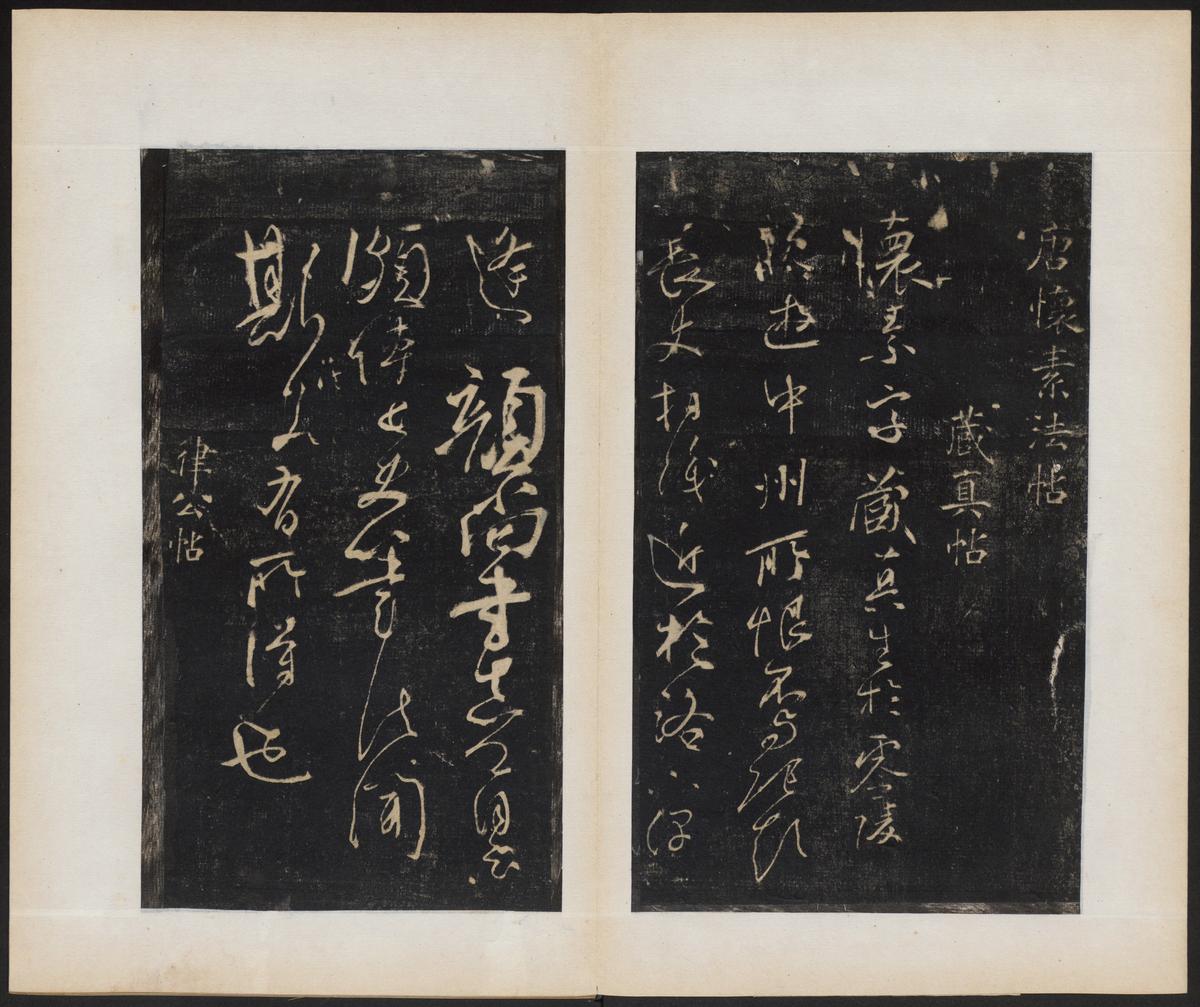 唐懷素法帖
藏真帖
懷素字藏真生於零陵
晚遊中州所恨不與張顛
長史相識近於洛下偶
逢顏尚書真卿自云
頗傳長史筆法聞
斯法若有所得也
律公帖